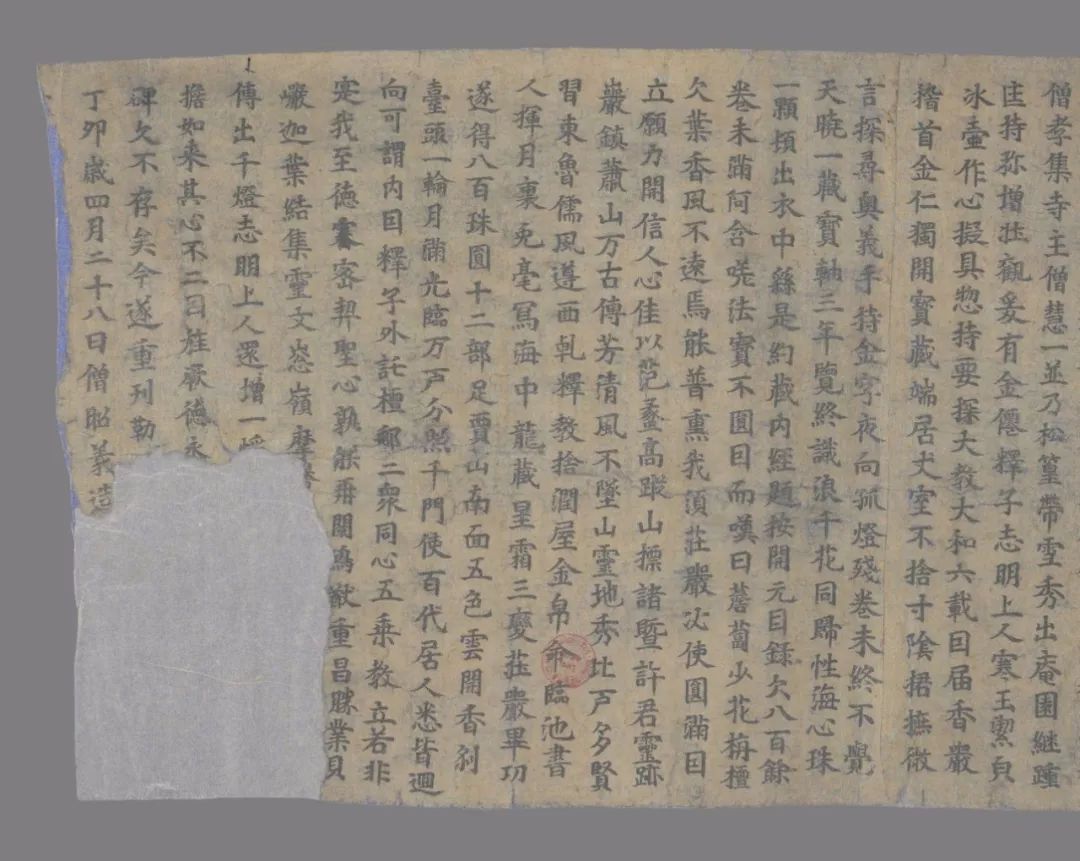 僧孝集寺主僧慧一並乃松篁帶雪秀出庵園継踵
住持弥增壮觀爰有金僊釋子志明上人寒玉絜貞
冰壷作心擬具惣持要探大教大和六載因届香嚴
稽首金仁獨開寳藏端居丈室不捨寸隂捃摭微
言探尋奥義手持金字夜向孤燈殘卷未終不覺
天曉一藏寳軸三年覽終識浪千花同歸性海心珠
一顆頓出水中繇是約藏内經題按開元目録欠八百餘
卷未滿阿含嗟法寳不圓因而嘆曰薝蔔少花栴檀
欠葉香風不遠焉能普熏我須莊嚴必使圓滿因
立願力開信人心佳以范蠡高蹤山摽諸曁許君靈跡
巖鎮蕭山万古傳芳清風不墜山靈地秀比戸多賢
習東魯儒風遵西乹釋教捨潤屋金帛命臨池書
人揮月裏兎毫冩海中龍藏星霜三變莊嚴畢功
遂得八百珠圓十二部足賈山南面五色雲開香刹
臺頭一輪月滿光臨万戸分照千門使百代居人悉皆迴
向可謂内因釋子外託檀郍二衆同心五乗教立若非
寔我至德審密契聖心孰能再闡鴻猷重昌勝業貝
巖迦葉結集靈文忩嶺摩
傳出千燈志明上人還增一
擔如来其心不二因旌厥德永
碑久不存矣今遂重刊勒
丁卯歳四月二十八日僧昭義造